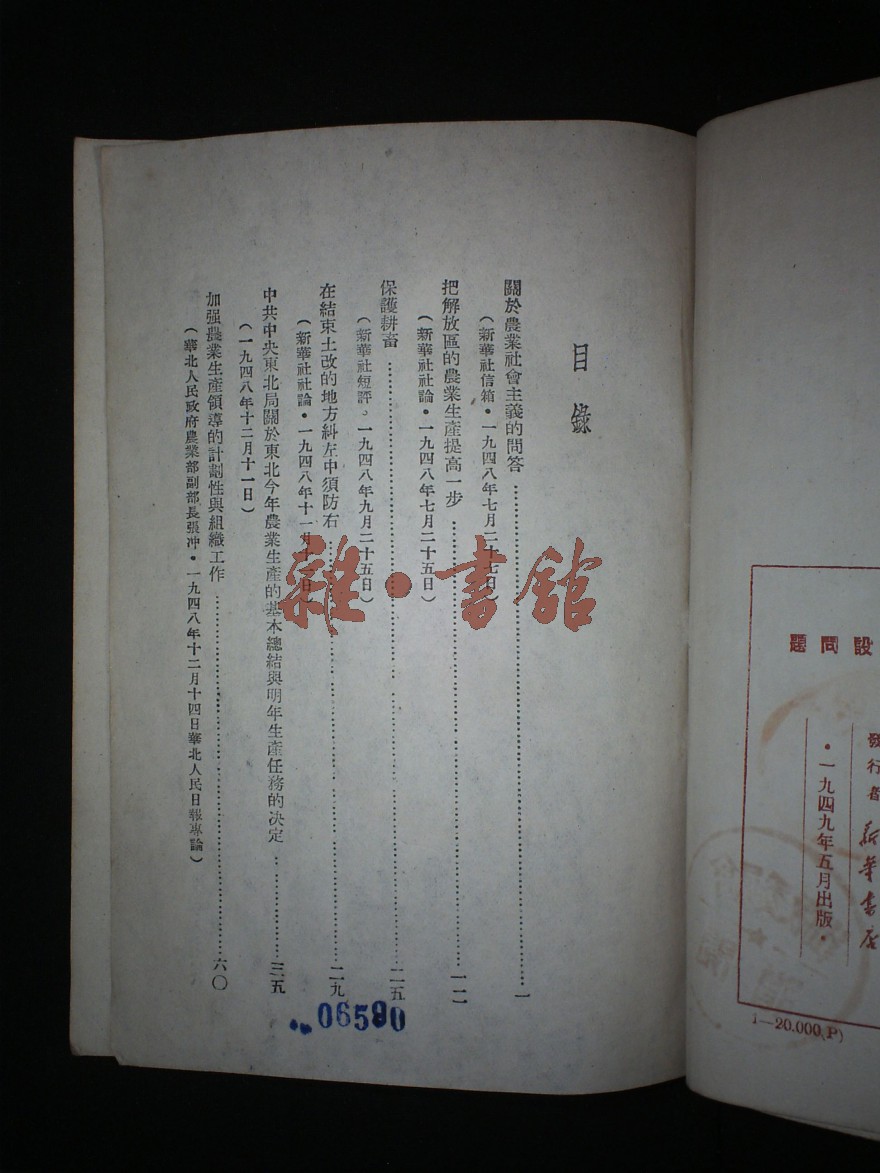 設問題
發行者 新華書店
·一九四九年五月出版·
1—20.000(P)
目錄
關於農業社會主義的問答……一
(新華社信箱·一九四八年七月二十七日)
把解放區的農業生產提高一步……一二
(新華社社論·一九四八年七月二十五日)
保護耕畜……二五
(新華社短評。一九四八年九月二十五日)
在結束土改的地方糾左中須防右……二九
(新華社社論·一九四八年十一月
中共中央東北局關於東北今年農業生產的基本總結與明年生產任務的決定……三五
(一九四八年十二月十一日)
加强農業生產領導的計劃性與組織工作……六〇
(華北人民政府農業部副部長張冲·一九四八年十二月十四日華北人民日報專論)
06590
雜·書館